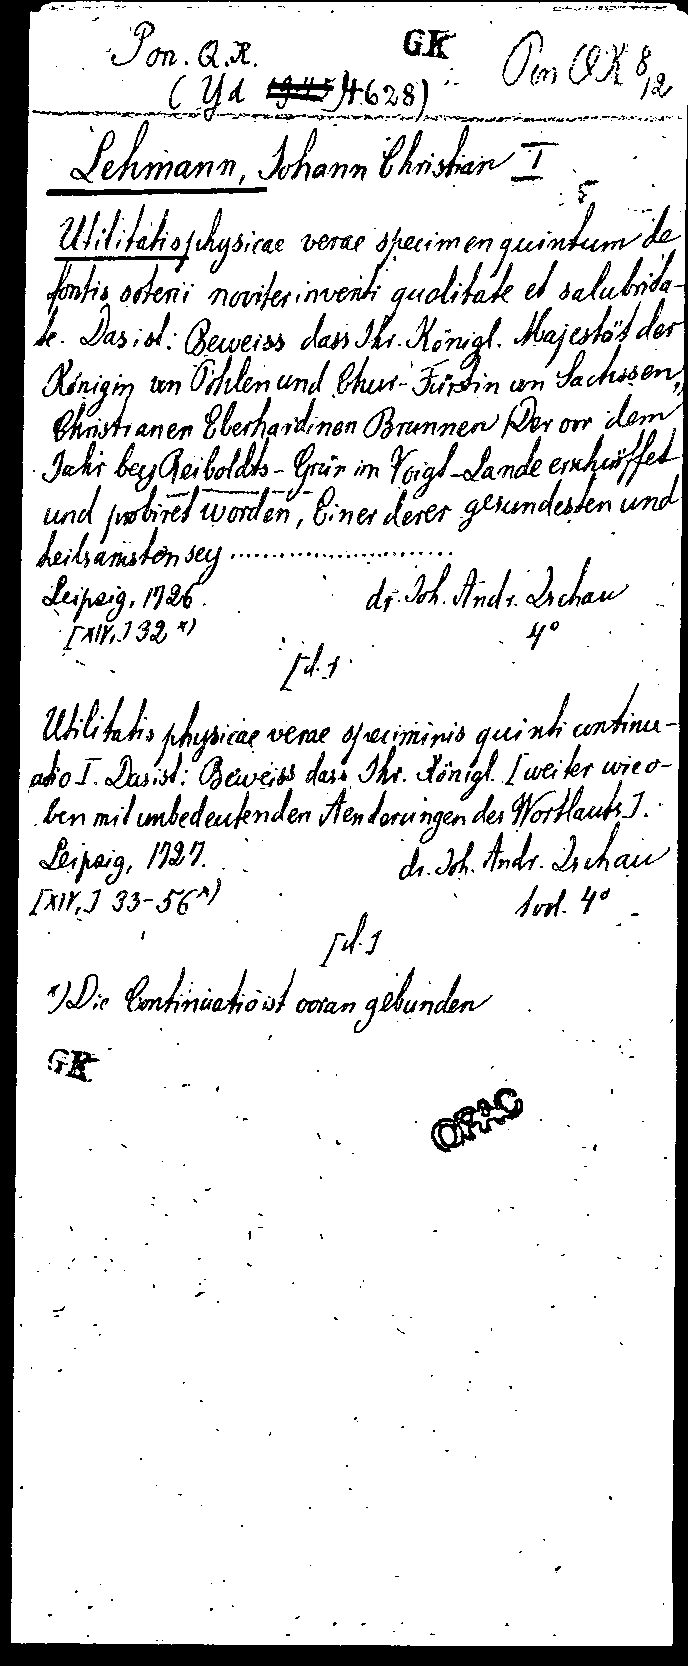 Pon. Q.K. GK Pon QK 8,12
(Yd 4628)
Lehmann, Johann Christian I
5
Utilitatis physicae verae specimen quintum de
fontis soterii noviter inventi qualitate et salubrita-
te. Das ist: Beweiss dass Ihr. Königl. Majestät der
Königin von Pohlen und Chur-Fürstin von Sachssen,
Christianen Eberhardinen Brunnen Der vor dem
Jahr bey Reiboldts-Grün im Voigt-Lande erschürffet
und probiret worden, Einer derer gesundesten und
heilsamsten sey ........................
Leipzig, 1726. dr. Joh. Andr. Zschau
[XIV,] 32 *) 4°
[d.]
Utilitatis physicae verae speciminis quinti continu-
atio I. Das ist: Beweiss dass Ihr. Königl. [weiter wie o-
ben mit unbedeutenden Aenderungen des Wortlauts].
Leipzig, 1727. dr. Joh. Andr. Zschau
[XIV,] 33-56 *) 4°
[d.]
*) Die Continuatio ist voran gebunden
GK
OPAC